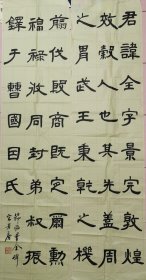 君諱全字景完敦煌
效穀人也其先蓋周
之胄武王秉乾之機
翦伐殷商既定爾勳
福祿攸同封弟叔振
鐸于曹國因氏